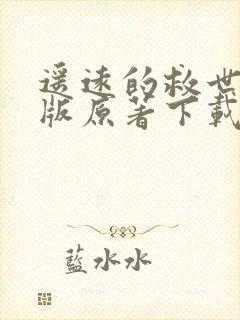 遥远的救世
版原著下載
藍水水